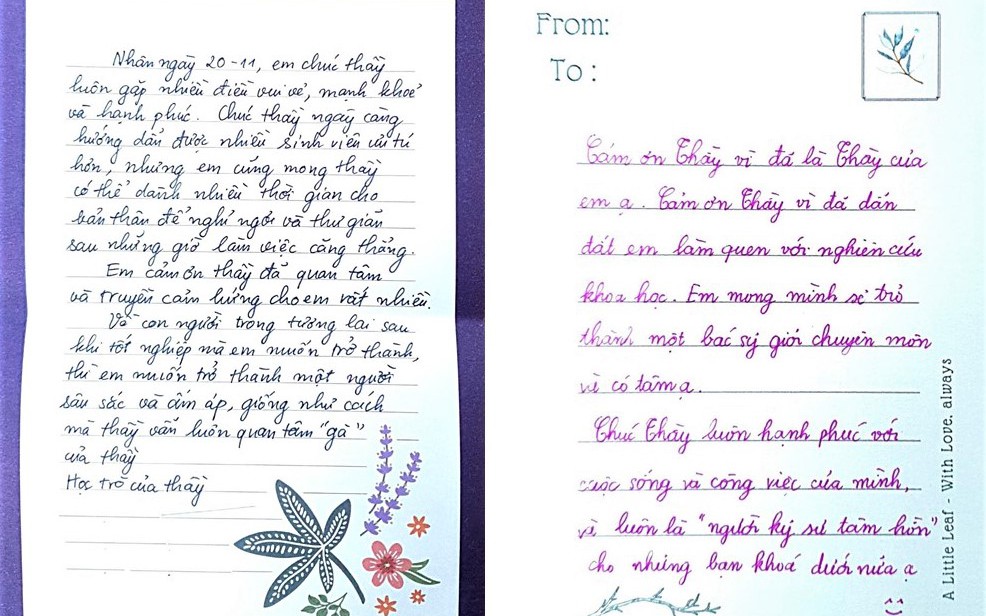 Nhân ngày 20-11, em chúc thầy
luôn gặp nhiều điều vui vẻ, mạnh khoẻ
và hạnh phúc. Chúc thầy ngày càng
hướng dẫn được nhiều sinh viên ưu tú
hơn, nhưng em cũng mong thầy
có thể dành nhiều thời gian cho
bản thân để nghỉ ngơi và thư giãn
sau những giờ làm việc căng thẳng.
Em cảm ơn thầy đã quan tâm
và truyền cảm hứng cho em rất nhiều.
Về con người trong tương lai sau
khi tốt nghiệp mà em muốn trở thành,
thì em muốn trở thành một người
sâu sắc và ấm áp, giống như cách
mà thầy vẫn luôn quan tâm "gà"
của thầy
Học trò của thầy
From:
To:
Cảm ơn Thầy vì đã là Thầy của
em ạ. Cảm ơn Thầy vì đã dẫn
dắt em làm quen với nghiên cứu
khoa học. Em mong mình sẽ trở
thành một bác sỹ giỏi chuyên môn
và có tâm ạ.
Chúc Thầy luôn hạnh phúc với
cuộc sống và công việc của mình,
và luôn là "người kỹ sư tâm hồn"
cho những bạn khoá dưới nữa ạ
^^
A Little Leaf - With Love, always